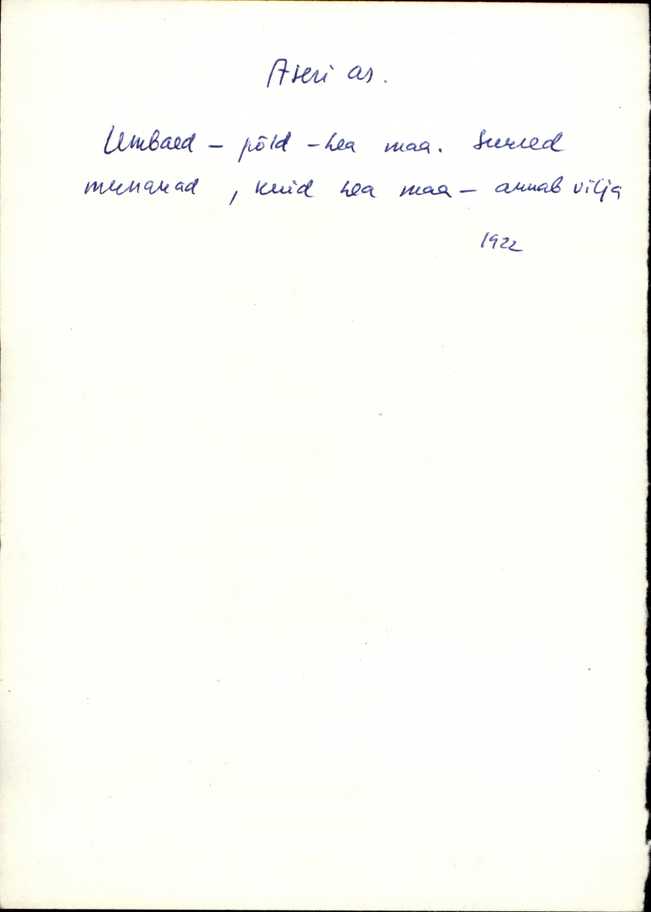 Aseri as.
Umbaed - põld - hea maa. Suured
munakad, kuid hea maa - annab vilja
1922